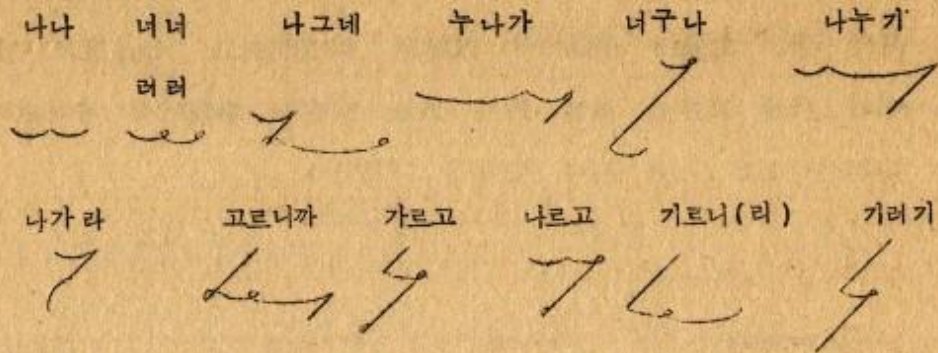 나나 너너 나그네 누나가 너구나 나누기
러러
나가라 고르니까 가르고 나르고 기르니(리) 기러기